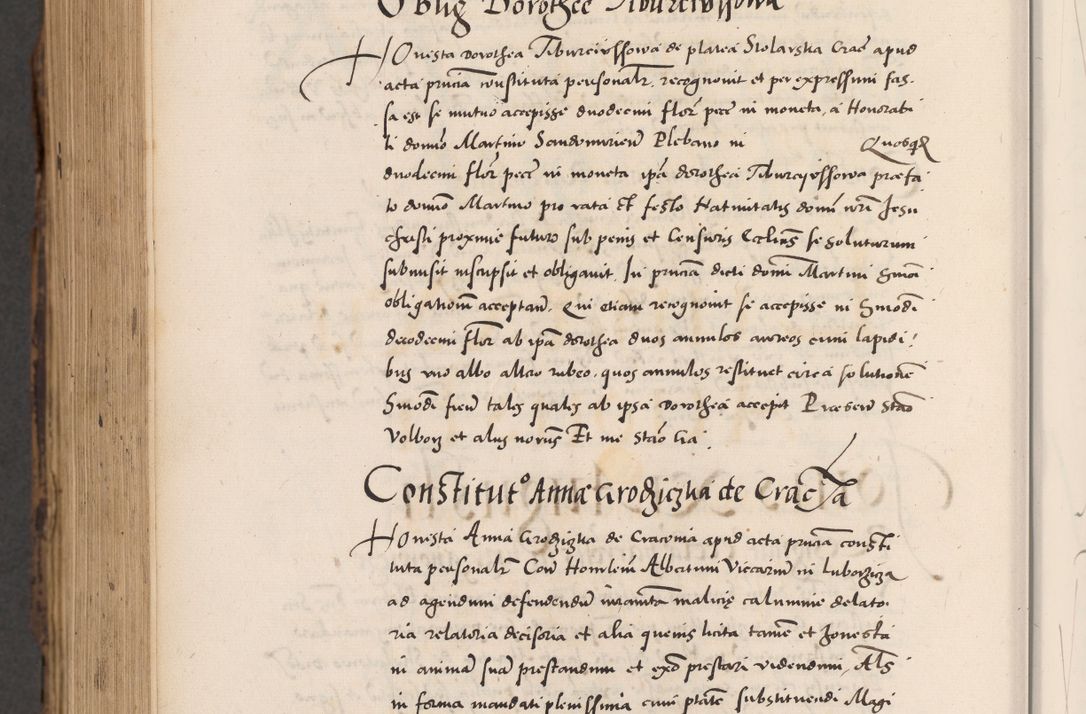 Oblig Dorothee Tiburciussowa
Honesta Dorothea Tiburciussowa de platea Stolarska Crac apud
acta prncia constituta personalr. recognovit et per expressum fas
sa est se mutuo accepisse duodecim flor pecc in moneta, a Honorabi
li domino Martino Sandomirien Plebano in Quosqd
duodecim flor pecc in moneta ipa dorothea Tiburciussowa praefa
to domino Martino pro rata et festo Nativitatis domini nri Jesu
christi proxime futuro sub penis et Censuris Eccliis se soluturum
submisit inscripsit et obligavit. In prncia dicti domini Martini
obligationem acceptan. Qui etiam recognovit se accepisse in
decodecim flor ab ipa dorothea duos annulos aureos cum lapidi
bus uno albo altero rubeo. quos annulos restituet circa solutione
fien tales quales ab ipsa Dorothea accepit Praesen Stao
Volborz et alys Et me Stao
Constituto Annae Grodziczka de Cracovia
Honesta Anna Grodziczka de Cracovia apud acta prncia consti
tuta personalr Con Homlein Albertum Vicarium in Luborzicza
ad agendum defendendum malicie calumnie delato
ria relatoria decisoria et alia quevis licita tamen et honesta
in animam suam prestandum et exo prestari videndum, Als
in forma mandati plenissima cum ptate substituendi Magi